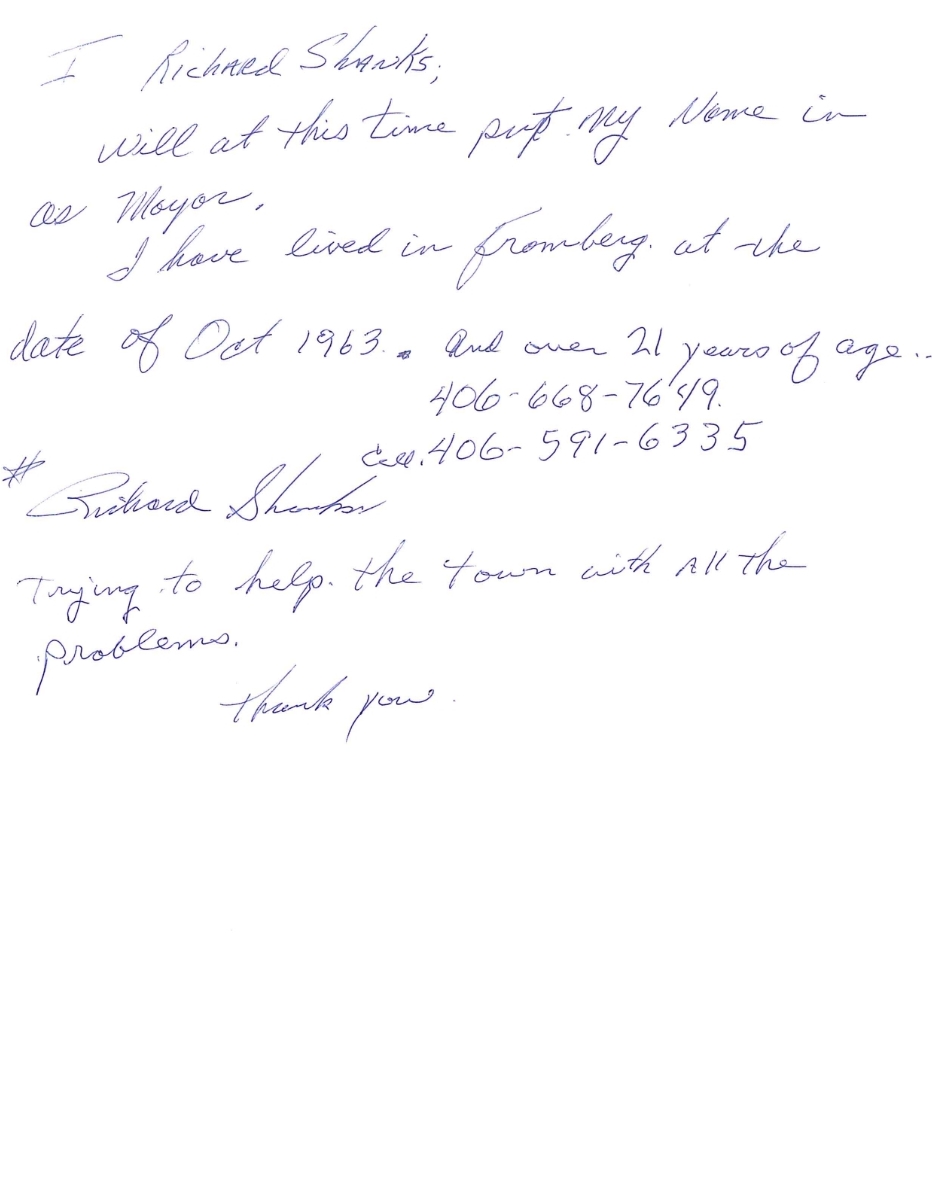 I Richard Shanks,
will at this time put my Name in
as Mayor.
I have lived in fromberg. at the
date of Oct 1963. And over 21 years of age..
406-668-7649.
Cell. 406-591-6335
# Richard Shanks
Trying to help. the town with All the
problems.
thank you.